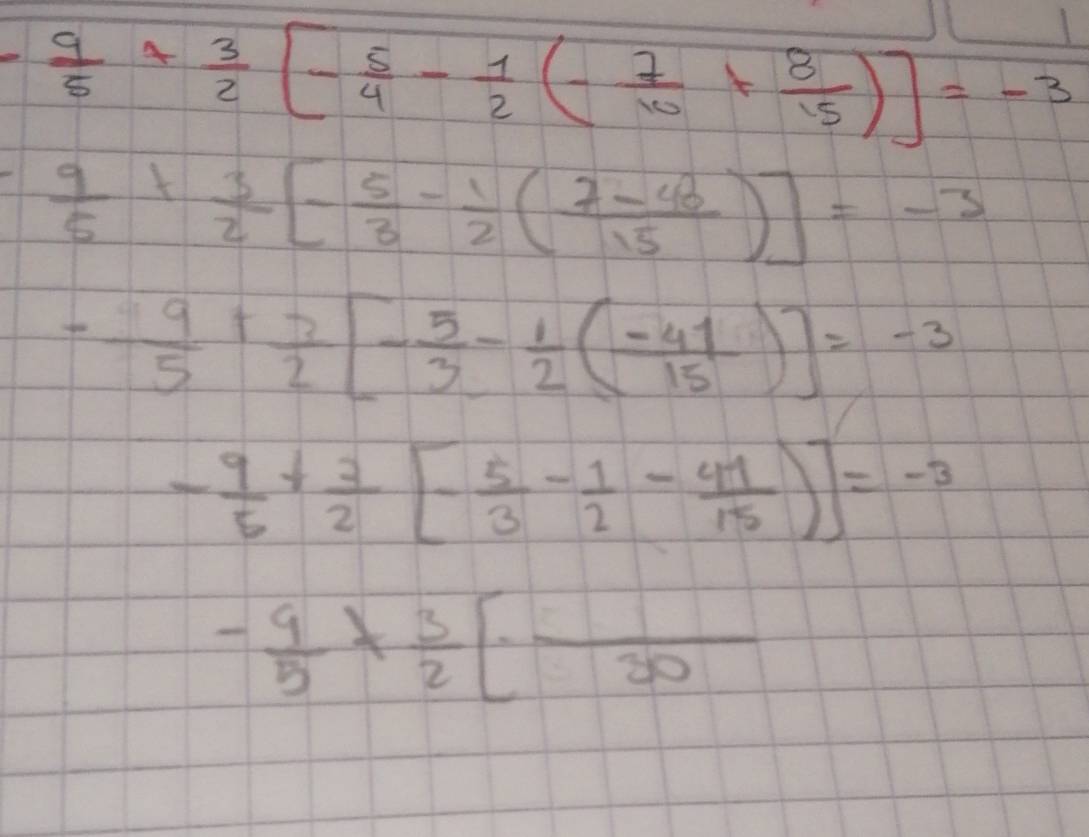 - 9/5 + 3/2 [ - 5/4 - 1/2 ( - 7/10 + 8/15 ) ] = - 3
- 9/5 + 3/2 [ - 5/3 - 1/2 ( 7 - 48/15 ) ] = - 3
- 9/5 + 3/2 [ - 5/3 - 1/2 ( - 41/15 ) ] = - 3
- 9/5 + 3/2 [ - 5/3 - 1/2 - 41/15 ) ] = - 3
- 9/5 + 3/2 [ - /30